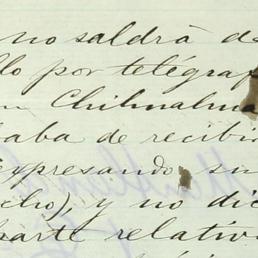 no saldrá de
llo por telégraf
Chihuahua
aba de recibi
expresando su
cho), y no dic
parte relativ